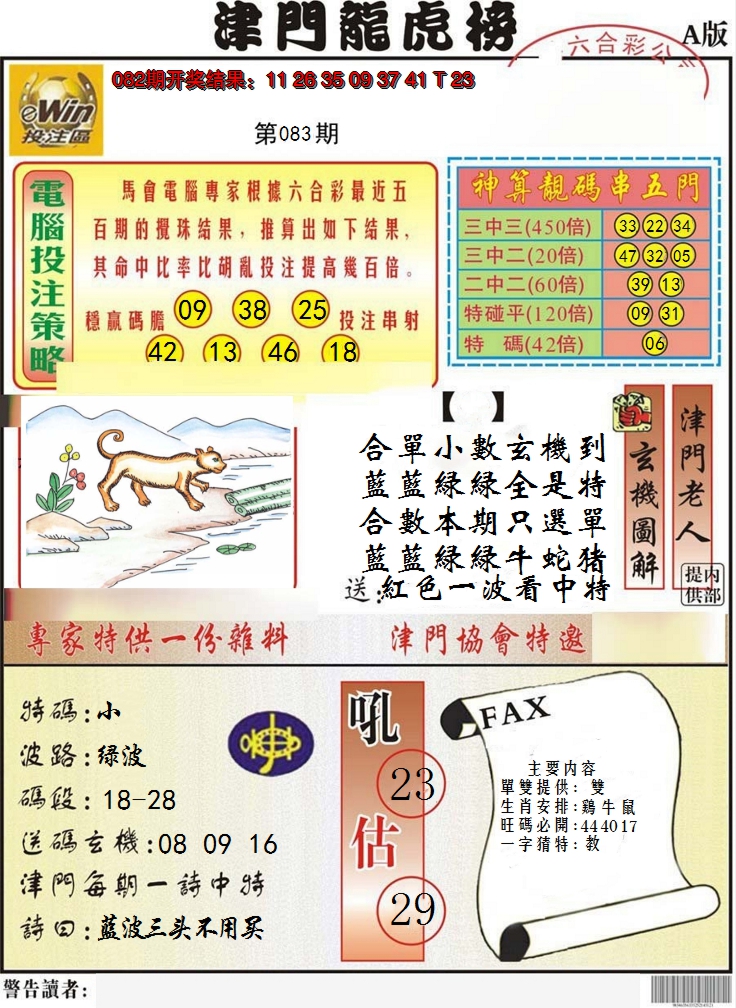 津門龍虎榜
A版
六合彩公
082期开奖结果：11 26 35 09 37 41 T 23
eWin
投注區
第083期
電腦投注策略
馬會電腦專家根據六合彩最近五
百期的攪珠结果，推算出如下结果，
其命中比率比胡亂投注提高幾百倍。
穩贏碼膽 09 38 25 投注串射
42 13 46 18
神算靚码串五門
三中三(450倍) 33 22 34
三中二(20倍) 47 32 05
二中二(60倍) 39 13
特碰平(120倍) 09 31
特 碼(42倍) 06
【 】
合單小數玄機到
藍藍緑緑全是特
合數本期只選單
藍藍緑緑牛蛇猪
送:紅色一波看中特
玄機圖解
津門老人
内部提供
專家特供一份雜料
津門協會特邀
特碼:小
波路:绿波
碼段:18-28
送碼玄機:08 09 16
津門每期一詩中特
詩曰:藍波三头不用买
吼
23
估
29
FAX
主要内容
單雙提供：雙
生肖安排:鷄牛鼠
旺碼必開:444017
一字猜特：教
警告讀者：